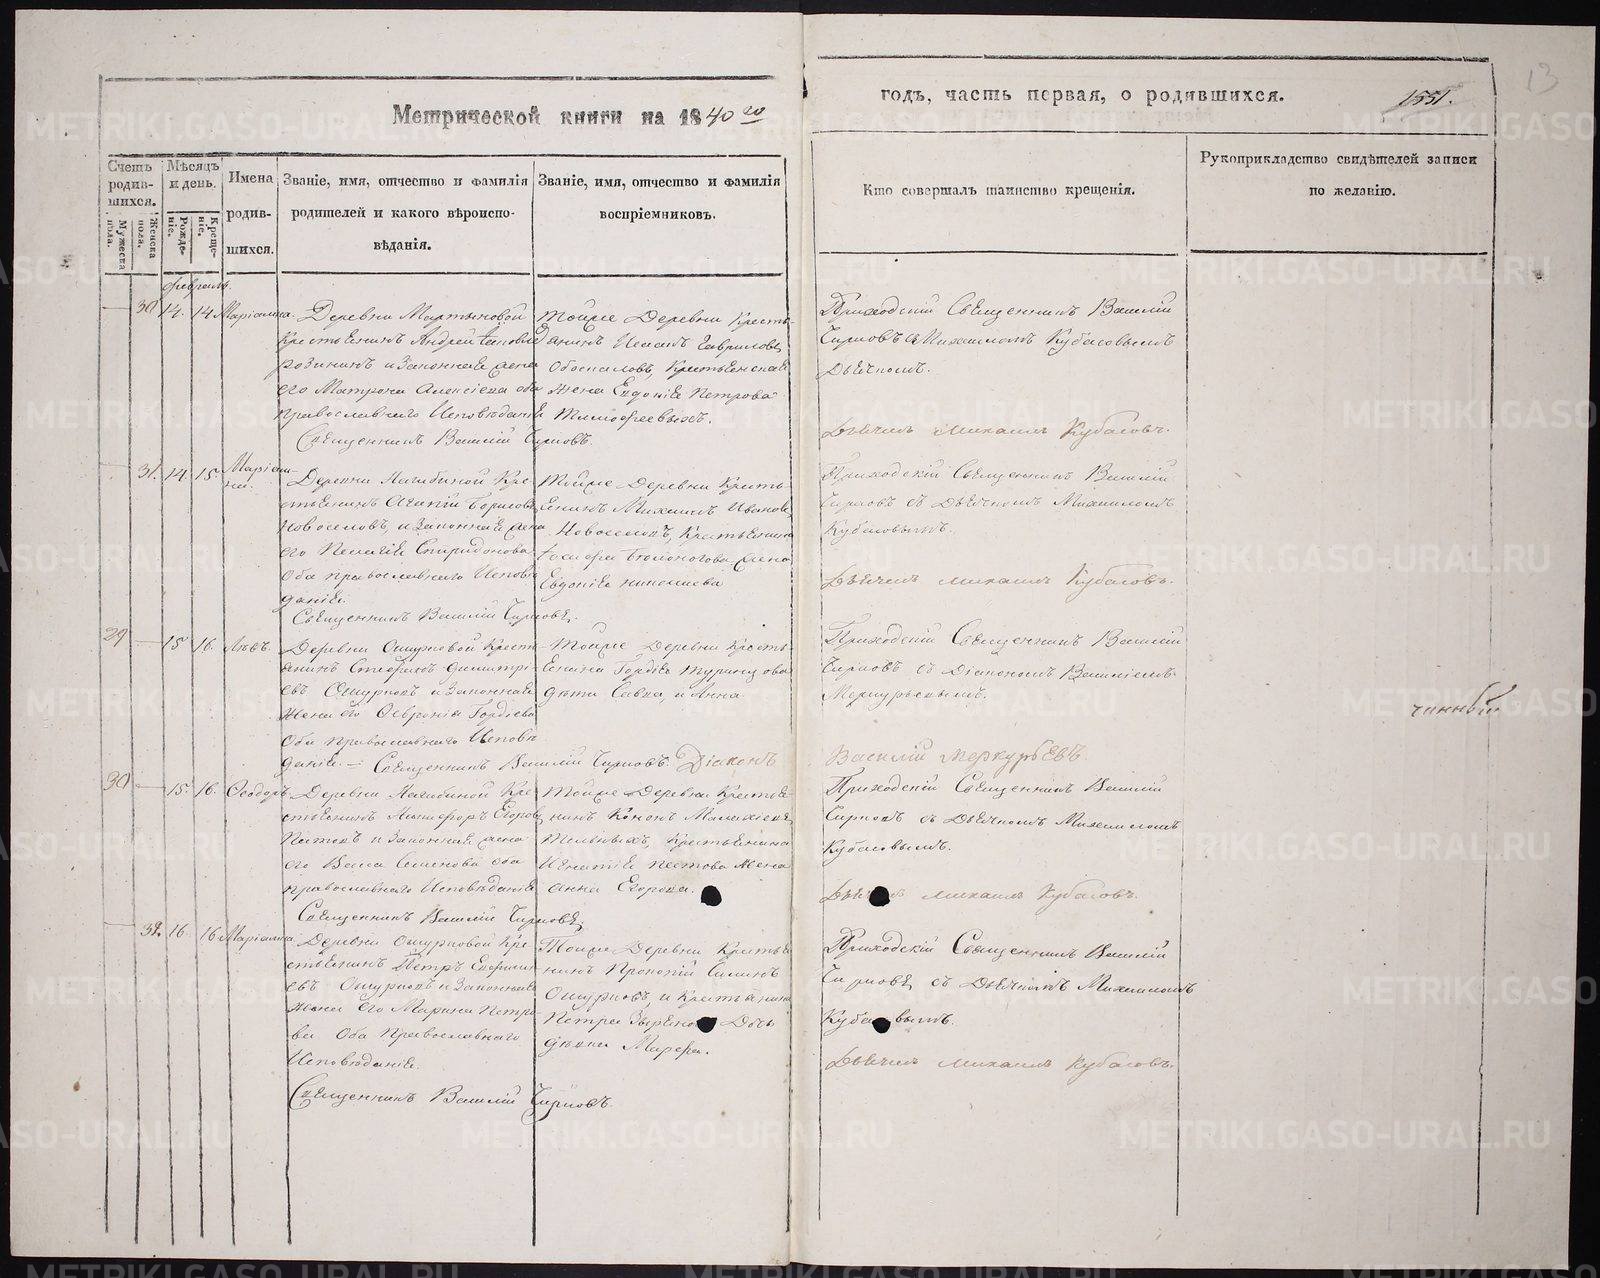 Метрической книги на 1840 го
годъ, часть первая, о родившихся.
1551.
13
Счетъ родив-шихся.
Мужеска пола.
Женска пола.
Мѣсяцъ и день.
Рожде-ніе.
Креще-ніе.
Имена
родив-
шихся.
Званіе, имя, отчество и фамилія
родителей и какого вѣроиспо-
вѣданія.
Званіе, имя, отчество и фамилія
воспріемниковъ.
Кто совершалъ таинство крещенія.
Рукоприкладство свидѣтелей записи
по желанію.
февраль.
30 14. 14 Маріамна.
Деревни Мартыновой
Крестьянинъ Андрей
и Законная жена
его Матрона Алексіева оба
православнаго Исповѣданія
Священникъ Василій
Тойже Деревни Кресть-
янинъ Гаврилов
Крестьянская
жена Евдокія Петрова
Тимофеевыхъ.
Приходскій Священникъ Василій
съ Михаиломъ Кубасовымъ
Дьячкомъ.
Дьячекъ Михаилъ Кубасовъ.
31. 14. 15. Маріам-
на.
Деревни Нагибиной Кре-
стьянинъ Борисовъ
Новоселовъ, и Законная жена
его Пелагія Спиридонова
Оба православнаго Исповѣ
данія.
Священникъ Василій
Тойже Деревни Кресть-
янинъ Михаилъ Иванов
Новоселовъ, Крестьянина
Бѣлоногова жена
Евдокія
Приходскій Священникъ Василій
съ Дьячкомъ Михаиломъ
Кубасовымъ.
Дьячекъ Михаилъ Кубасовъ.
29 15 16. Левъ.
Деревни Ошурковой Крест
янинъ Стефанъ Димитрі-
евъ Ошурковъ и Законная
жена его Февронія Гордѣева
Оба православнаго Исповѣ
данія. — Священникъ Василій
Діаконъ
Тойже Деревни Кресть
янина Гордѣя
дѣти Савва, и Анна
Приходскій Священникъ Василій
съ Діакономъ Василіемъ
Меркурьевымъ.
Василій Меркурьевъ
чинный
30 15. 16. Феодоръ.
Деревни Нагибиной Кре
стьянинъ Никифоръ Егоров
Пестовъ и Законная жена
его Васса Семенова оба
православнаго Исповѣданія
Священникъ Василій
Тойже Деревни Крестья
нинъ Кононъ
Крестьянина
Игнатія Пестова жена
Анна Егорова.
Приходскій Священникъ Василій
съ Дьячкомъ Михаиломъ
Кубасовымъ.
Михаилъ Кубасовъ.
32. 16. 16 Маріамна.
Деревни Ошурковой Кре
стьянинъ Петръ
евъ Ошурковъ и Законная
жена его Марина Петро
ва Оба православнаго
Исповѣданія.
Священникъ Василій
Тойже Деревни Крестья
нинъ Прокопій
Ошурковъ, и Крестьянина
Петра
Марфа.
Приходскій Священникъ Василій
съ Дьячкомъ Михаиломъ
Кубасовымъ.
Дьячекъ Михаилъ Кубасовъ.
METRIKI.GASO-URAL.RU